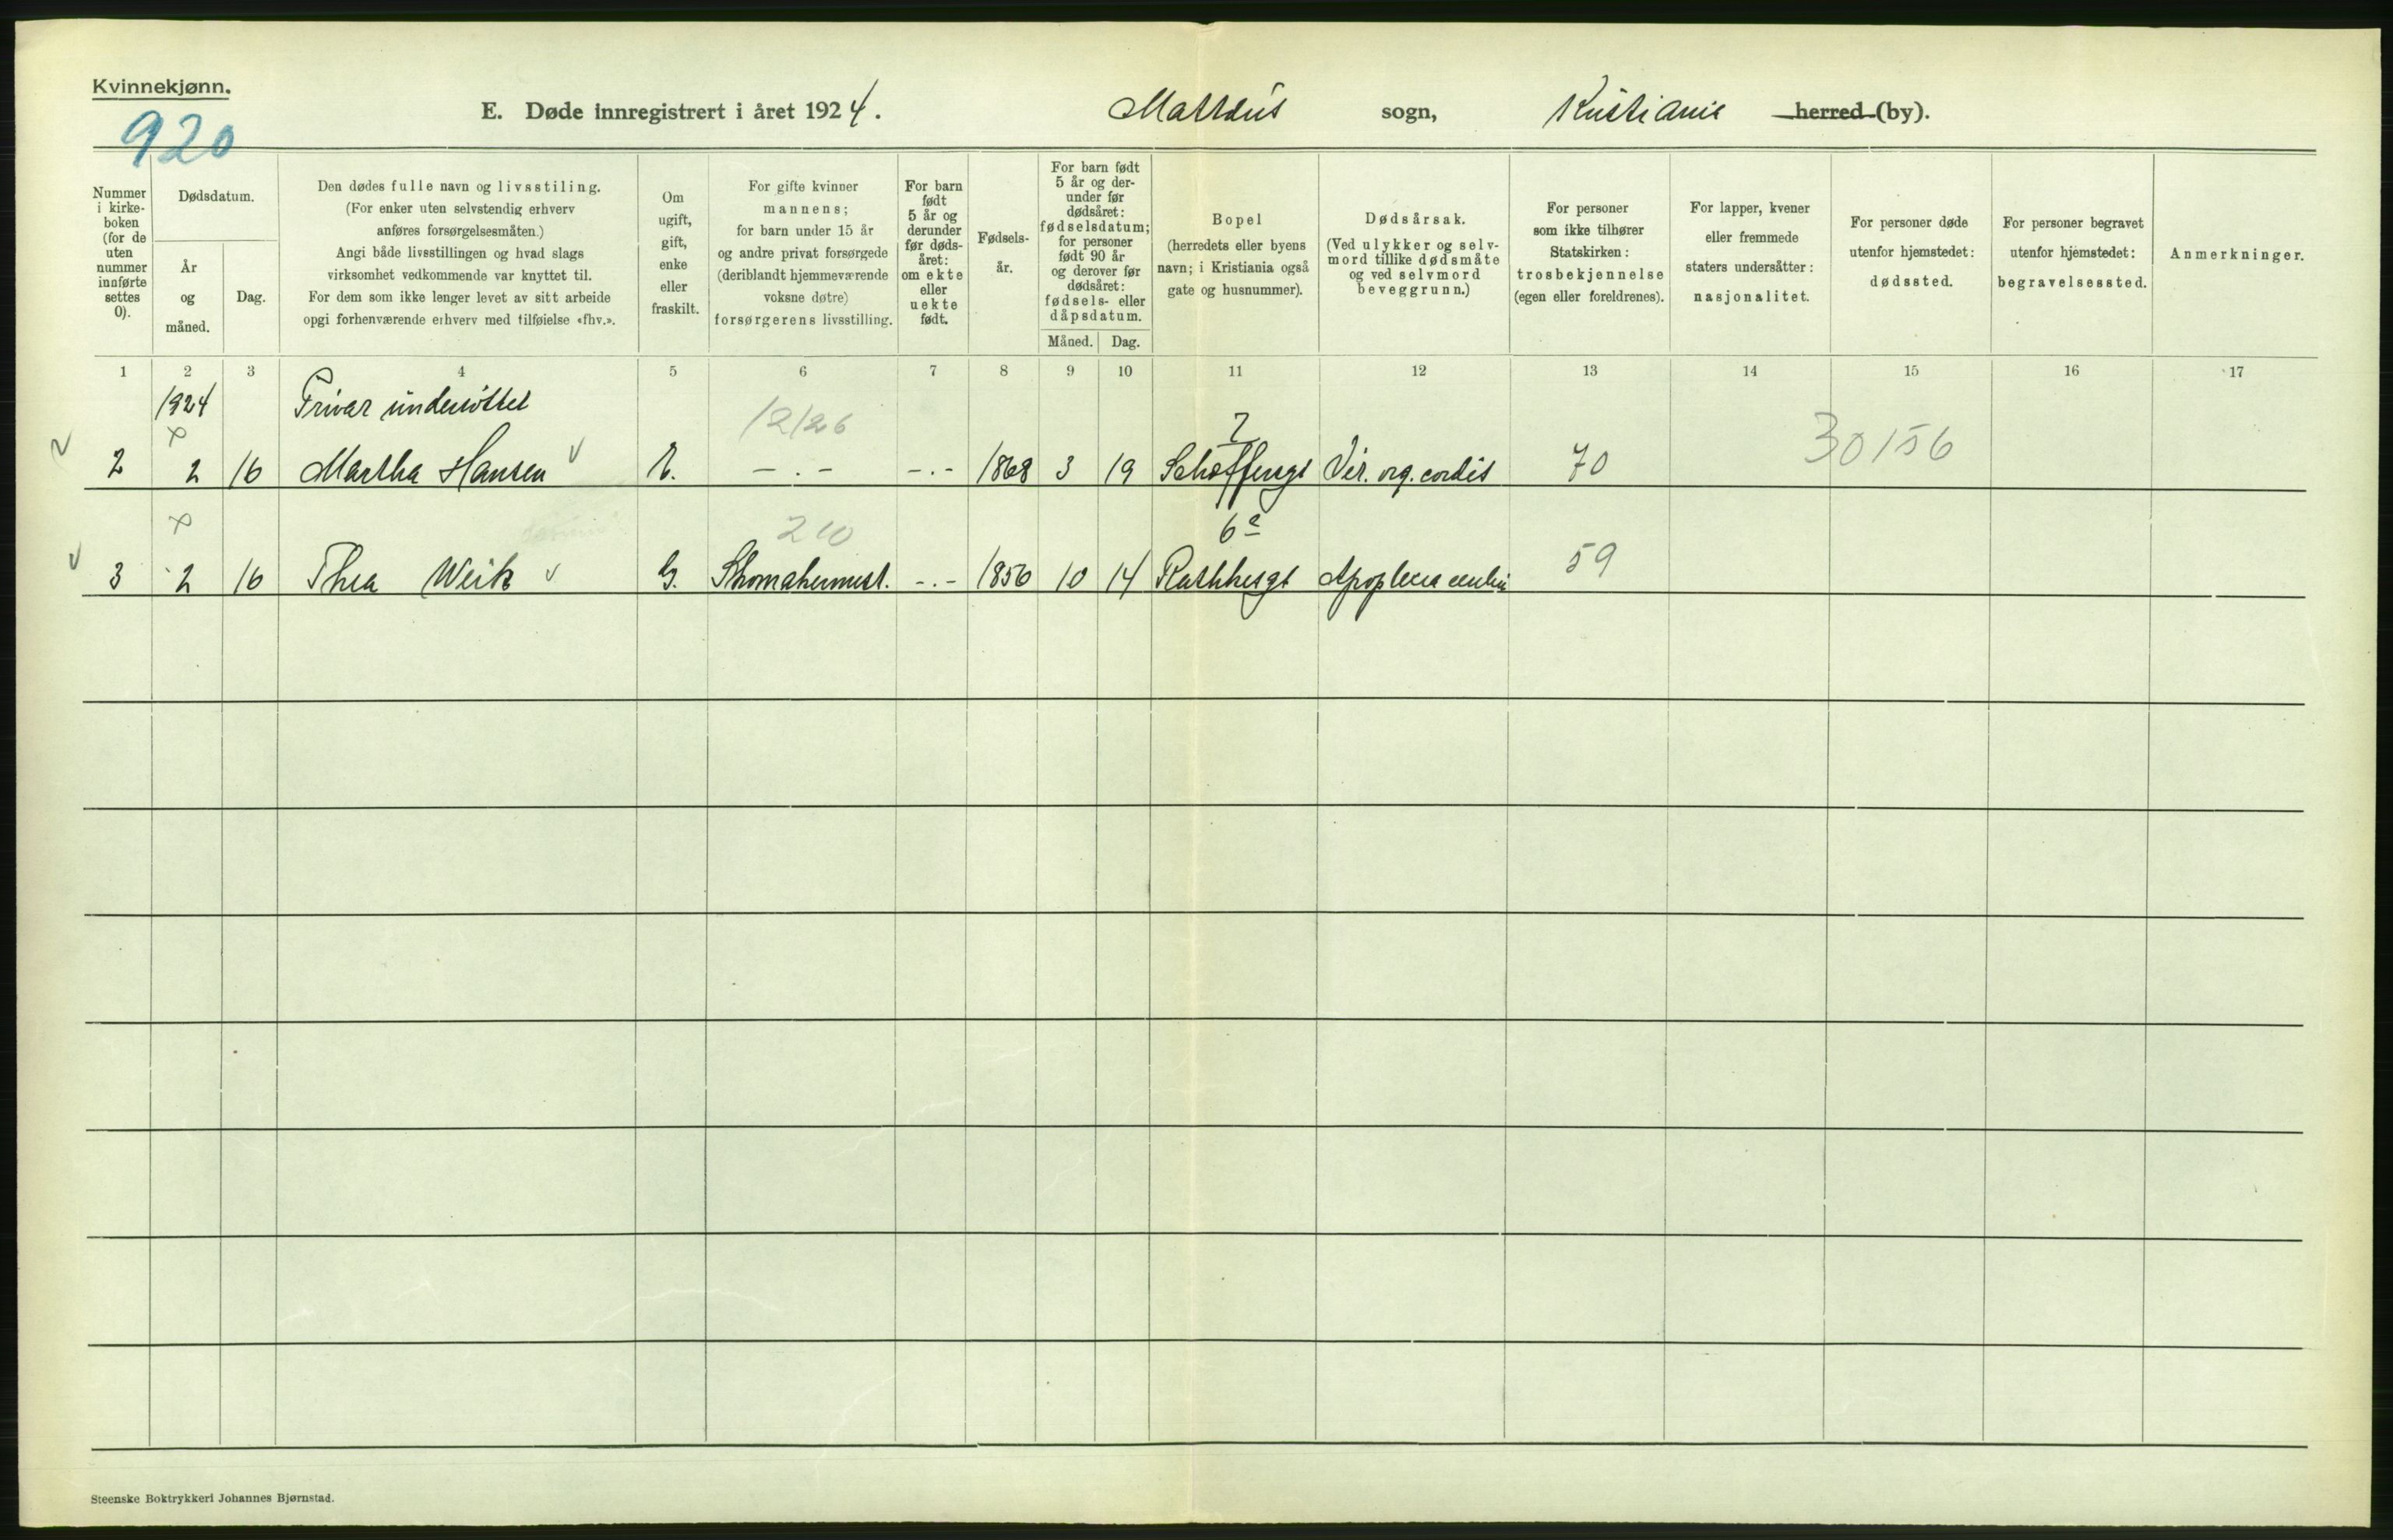 Kvinnekjønn.
920
E. Døde innregistrert i året 1924. Mattæus sogn, Kristiania herred (by).
Nummer i kirkeboken (for de uten nummer innførte settes 0).
Dødsdatum.
År og måned.
Dag.
Den dødes fulle navn og livsstiling.
(For enker uten selvstendig erhverv
anføres forsørgelsesmåten.)
Angi både livsstillingen og hvad slags
virksomhet vedkommende var knyttet til.
For dem som ikke lenger levet av sitt arbeide
opgi forhenværende erhverv med tilføielse «fhv.».
Om
ugift,
gift,
enke
eller
fraskilt.
For gifte kvinner
mannens;
for barn under 15 år
og andre privat forsørgede
(deriblandt hjemmeværende
voksne døtre)
forsørgerens livsstilling.
For barn
født
5 år og
derunder
før døds-
året:
om ekte
eller
uekte
født.
Fødsels-
år.
For barn født
5 år og der-
under før
dødsåret:
fødselsdatum;
for personer
født 90 år
og derover før
dødsåret:
fødsels- eller
dåpsdatum.
Måned. Dag.
Bopel
(herredets eller byens
navn; i Kristiania også
gate og husnummer).
Dødsårsak.
(Ved ulykker og selv-
mord tillike dødsmåte
og ved selvmord
beveggrunn.)
For personer
som ikke tilhører
Statskirken:
trosbekjennelse
(egen eller foreldrenes).
For lapper, kvener
eller fremmede
staters undersåtter:
nasjonalitet.
For personer døde
utenfor hjemstedet:
dødssted.
For personer begravet
utenfor hjemstedet:
begravelsessted.
Anmerkninger.
1 2 3 4 5 6 7 8 9 10 11 12 13 14 15 16 17
1924 Privat understøttet
12/26 7 30156
2 2 16 Martha Hansen E. -.- -.- 1868 3 19 Vir. org. cordis 70
210 6
3 2 16 Thea Weik G. Skomakermest. -.- 1856 10 14 Rathkesgt 59
Steenske Boktrykkeri Johannes Bjørnstad.